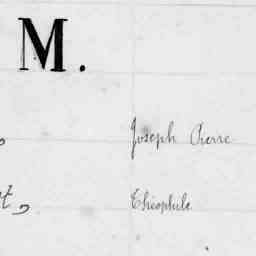 M.
, Joseph Pierre
t, Théophile